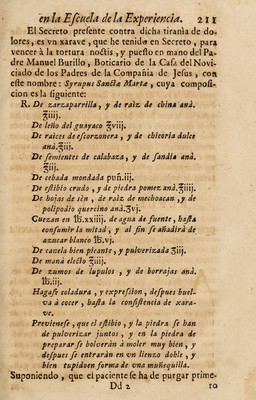 en la Escuela de la Experiencia. 211
El Secreto presente contra dicha tirania de do-
lores, es vn xarave, que he tenido en Secreto, para
vencer à la tortura noctis, y puesto en mano del Pa-
dre Manuel Burillo, Boticario de la Casa del Novi-
ciado de los Padres de la Compañia de Jesus, con
este nombre: Syrupus Sanctæ Martæ, cuya composi-
cion es la siguiente:
R. De zarzaparrilla, y de raiz de china anà.
℥iiij.
De leño del guayaco ℥viij.
De raices de escorzonera, y de chicoria dulce
anà.℥iij.
De semientes de calabaza, y de sandia anà.
℥iij.
De cebada mondada puñ.iij.
De estibio crudo, y de piedra pomez anà.℥iiij.
De hojas de sèn, de raiz de mechoacan, y de
polipodio quercino anà.℥vj.
Cuezan en ℔.xxiiij. de agua de fuente, hasta
consumir la mitad, y al fin se añadirà de
azucar blanco ℔.vj.
De canela bien picante, y pulverizada ʒiij.
De manà electo ℥iij.
De zumos de lupulos, y de borrajas anà.
℔.iij.
Hagase coladura, y expression, despues buel-
va à cocer, hasta la consistencia de xara-
ve.
Previenese, que el estibio, y la piedra se han
de pulverizar juntos, y en la piedra de
preparar se bolveràn à moler muy bien, y
despues se entraràn en vn lienzo doble, y
bien tupido en forma de vna muñequilla.
Suponiendo, que el paciente se ha de purgar prime-
Dd 2 ro